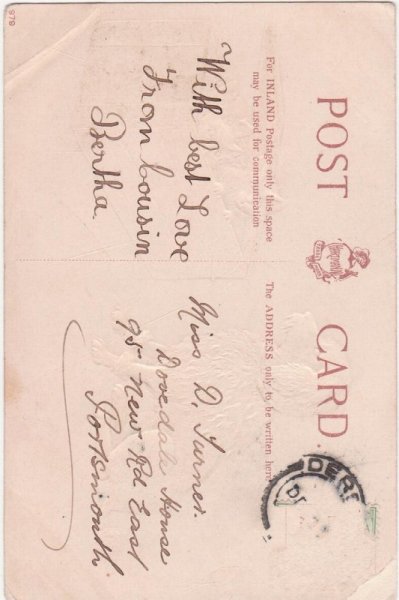 979
POST CARD.
For INLAND Postage only this space
may be used for communication
The ADDRESS only to be written here
With best Love
From Cousin
Bertha.
Miss D, Turner.
Dovedale House
95 New Rd East
Portsmouth
DER